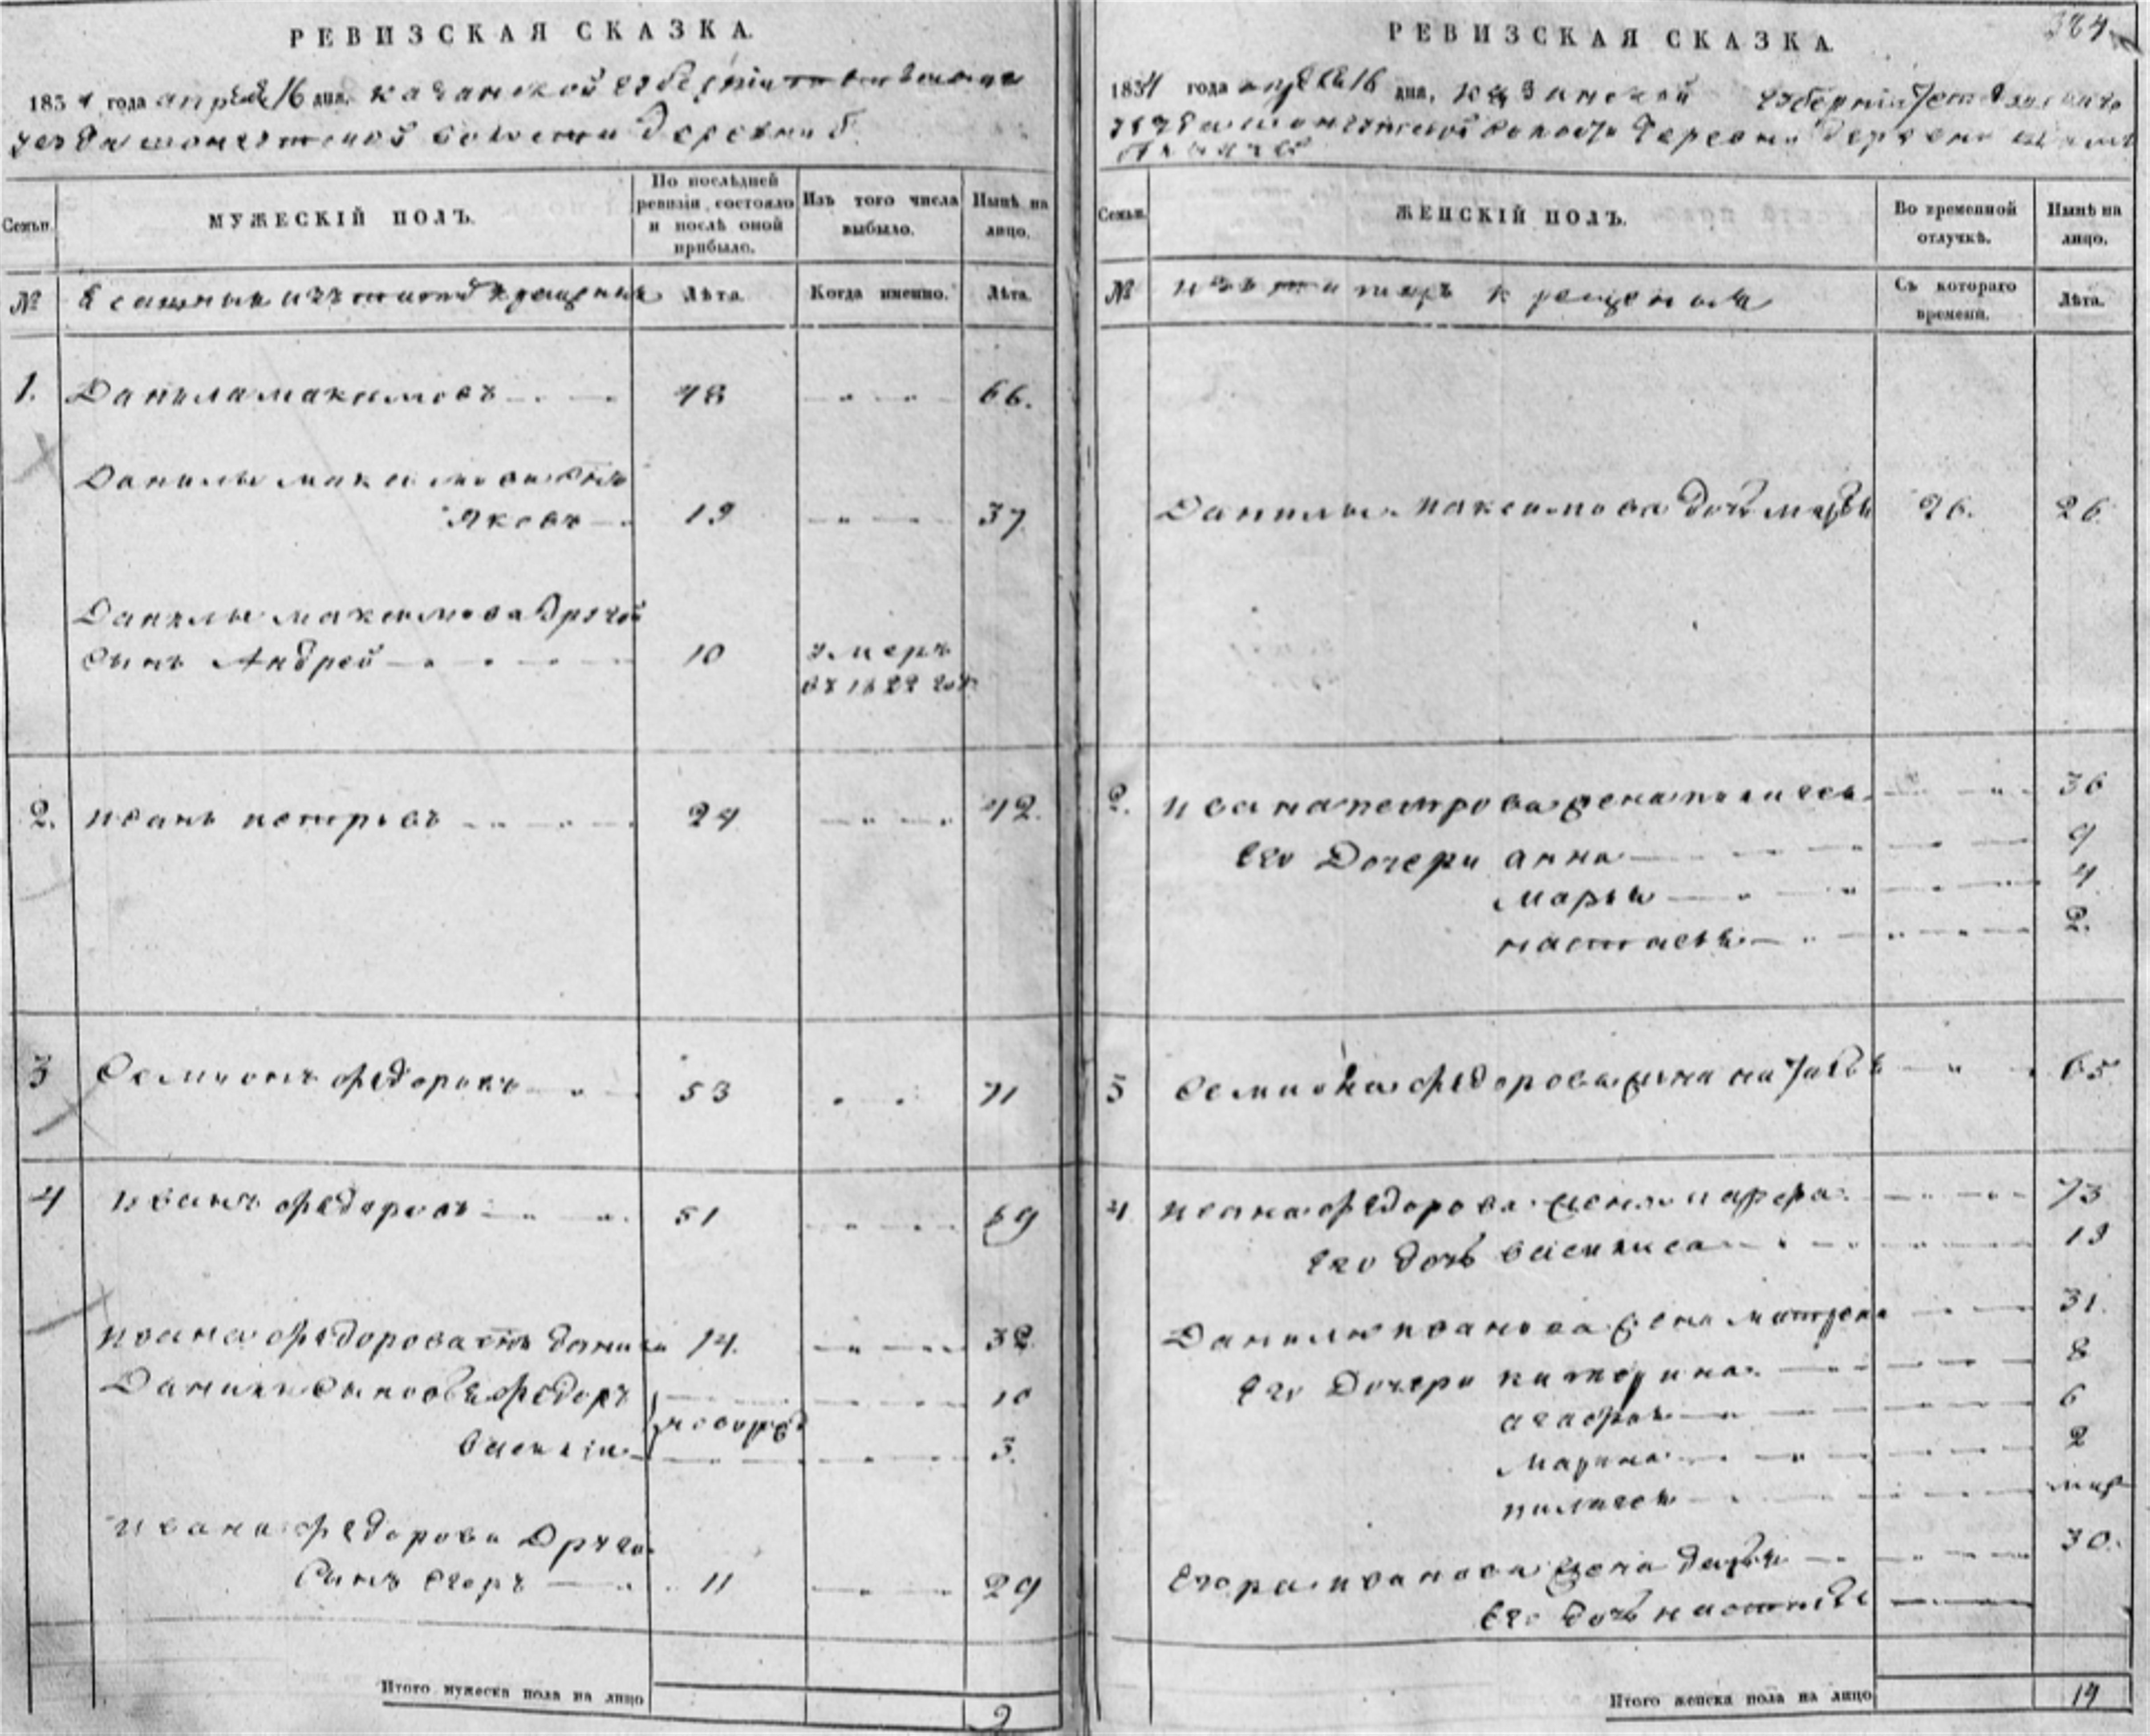 РЕВИЗСКАЯ СКАЗКА.
1834 года апреля 16 дня, казанской губернiи
уезда волости деревни
Семьи.
МУЖЕСКІЙ ПОЛЪ.
По послѣдней ревизіи состояло и послѣ оной прибыло.
Изъ того числа выбыло.
Нынѣ на лицо.
№
Ясашныя изъ крещеныя
Лѣта.
Когда именно.
Лѣта.
1. Данила максимовъ 48 66.
Данилы максимова сынъ
Яковъ 19 37
Данилы максимова другой
сынъ Андрей 10 умеръ
въ 1822 годъ
2. иванъ петровъ 24 42.
3 Семионъ федоровъ 53 71
4 иванъ федоровъ 51 69
ивана федорова сынъ данила 14. 32
Данилы сыновья федоръ 10
новорож
василiи 3.
ивана федорова другой
сынъ егоръ 11 29
Итого мужеска пола на лицо
9
384
РЕВИЗСКАЯ СКАЗКА.
1834 года апреля 16 дня, казанской губернiи
волости деревни
Семьи.
ЖЕНСКІЙ ПОЛЪ.
Во временной отлучкѣ.
Нынѣ на лицо.
№
изъ татаръ крещеныя
Съ котораго времени.
Лѣта.
Данилы максимова дочь марья 26. 26.
2. ивана петрова жена пелагея 36
его дочери анна 9
марья 4
настасья 2.
3 Семиона федорова жена 65
4 ивана федорова жена марфа 73
его дочь василиса 19
Данилы иванова жена матрена 31.
его дочери катерина 8
агафья 6
марина 2
пилагея
егора иванова жена дарья 30.
его дочь настасья
Итого женска пола на лицо 14